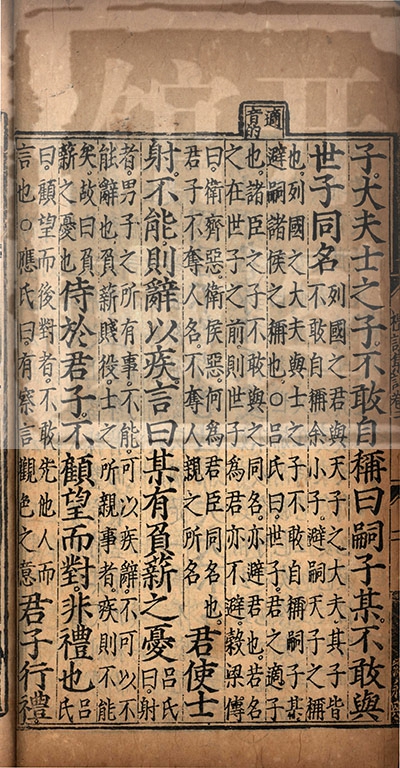 適音的
子大夫士之子不敢自稱曰嗣子某不敢與
世子同名
列國之君與天子之大夫其子皆
不敢自稱余小子避嗣天子之稱
也列國之大夫與士之子不敢自稱嗣子某
避嗣諸侯之稱也○呂氏曰世子君之適子
也諸臣之子不敢與之同名亦避君也若名
之在世子之前則世子為君亦不避穀梁傳
曰衛齊惡衛侯惡何為君臣同名也
君子不奪人名不奪人親之所名
君使士
射不能則辭以疾言曰某有負薪之憂
呂氏
曰射
者男子之所有事不能可以疾辭不可以不
能辭也負薪賤役士之所親事者疾則不能
矣故曰負
薪之憂也
侍於君子不顧望而對非禮也
呂氏
曰顧望而後對者不敢先他人而
言也○應氏曰有察言觀色之意
君子行禮